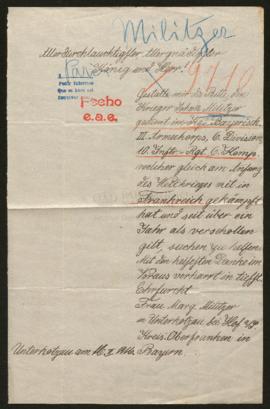 Militzer
Allerdurchlauchtigster Allergnädigster
König und Herr!
9710
Gestatte mir die Bitte, den
Krieger Militzer
gedient im Kgl. Bayerisch.
III. Armeekorps, 6. Division,
10. Inftr.-Rgt. 6. Komp.
welcher gleich am Anfang
des Weltkrieges mit in
Frankreich gekämpft
hat und seit über ein
Jahr als verschollen
gilt, suchen zu helfen.
Mit den heißesten Danke im
Voraus verharrt in tiefst.
Ehrfurcht
Frau Marg. Militzer
in Unterkotzau bei Hof
Kreis Oberfranken in
Bayern.
Unterkotzau am 16. 1916.
Fecho
e.a.e.